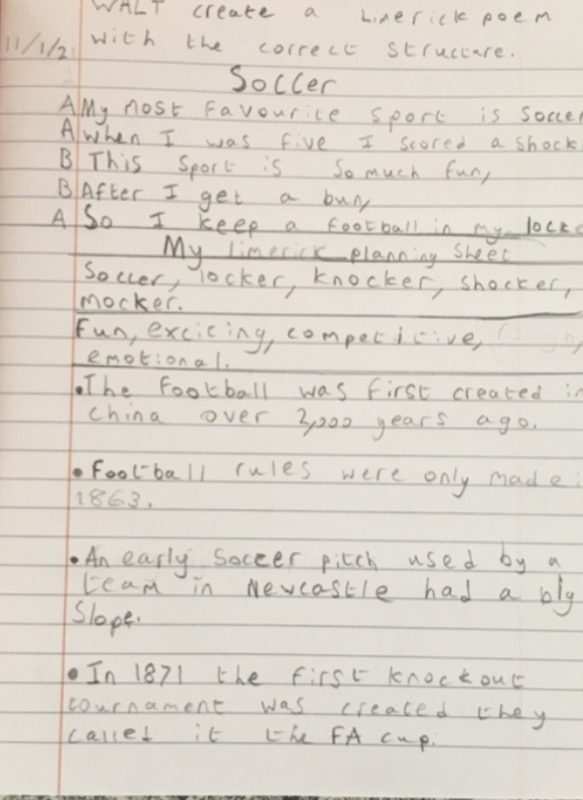 WALT create a limerick poem
11/1/21 with the correct structure.
Soccer
A My most favourite sport is Soccer
A when I was five I scored a shock
B This sport is so much fun,
B After I get a bun,
A So I keep a football in my locke
My limerick planning sheet
Soccer, locker, knocker, shocker,
mocker.
Fun, exciting, competitive,
emotional.
• The football was first created in
China over 2,000 years ago.
• Football rules were only made i
1863.
• An early soccer pitch used by a
team in Newcastle had a
slope.
• In 1871 the first knockout
tournament was created they
called it the FA cup.